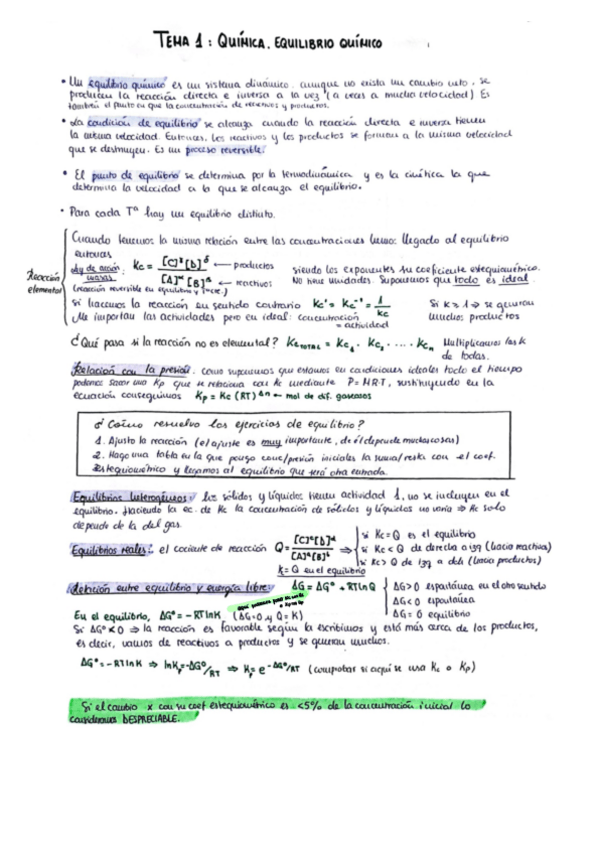 TEMA 1: QUÍMICA. EQUILIBRIO QUÍMICO
• Un equilibrio químico es un sistema dinámico, aunque no exista un cambio neto, se
producen la reacción directa e inversa a la vez (a veces a mucha velocidad) Es
también el punto en que la concentración de reactivos y productos.
• La condición de equilibrio se alcanza cuando la reacción directa e inversa tienen
la misma velocidad. Entonces, los reactivos y los productos se forman a la misma velocidad
que se destruyen. Es un proceso reversible.
• El punto de equilibrio se determina por la termodinámica y es la cinética la que
determina la velocidad a la que se alcanza el equilibrio.
• Para cada Tª hay un equilibrio distinto.
Cuando tenemos la misma relación entre las concentraciones hemos llegado al equilibrio
entonces
Reacción elemental
Ley de acción masas: Kc = [C]^γ [D]^δ / [A]^α [B]^β ← productos ← reactivos
siendo los exponentes su coeficiente estequiométrico.
No tiene unidades. Suponemos que todo es ideal.
(reacción reversible en equilibrio y T=cte.)
Si hacemos la reacción en sentido contrario Kc' = Kc⁻¹ = 1/Kc Si K > 1 ⇒ se generan
Me importan las actividades pero en ideal: concentración = actividad muchos productos
¿Qué pasa si la reacción no es elemental? Kc TOTAL = Kc₁ · Kc₂ · .... Kcₙ Multiplicamos las K
de todas.
Relación con la presión. como suponemos que estamos en condiciones ideales todo el tiempo
podemos sacar una Kp que se relaciona con Kc mediante P = M·R·T, sustituyendo en la
ecuación conseguimos Kp = Kc (RT)^Δn ← mol de dif. gaseosos
¿Cómo resuelvo los ejercicios de equilibrio?
1. Ajusto la reacción (el ajuste es muy importante, de él depende muchas cosas)
2. Hago una tabla en la que pongo conc/presión iniciales la suma/resta con el coef.
estequiométrico y llegamos al equilibrio que será otra entrada.
Equilibrios heterogéneos: los sólidos y líquidos tienen actividad 1, no se incluyen en el
equilibrio. Haciendo la ec. de Kc la concentración de sólidos y líquidos no varía ⇒ Kc solo
depende de la del gas.
Equilibrios reales: el cociente de reacción Q = [C]^c [D]^d / [A]^a [B]^b ⇒
si Kc = Q es el equilibrio
si Kc < Q de derecha a izq (hacia reactivos)
si Kc > Q de izq a dch (hacia productos)
K = Q en el equilibrio
Relación entre equilibrio y energía libre: ΔG = ΔG° + RT ln Q
ΔG > 0 espontánea en el otro sentido
ΔG < 0 espontánea
ΔG = 0 equilibrio
En el equilibrio, ΔG° = - RT ln K (ΔG = 0 y Q = K)
Si ΔG° < 0 ⇒ la reacción es favorable según la escribimos y está más cerca de los productos,
es decir, vamos de reactivos a productos y se generan muchos.
ΔG° = - RT ln K ⇒ ln K = -ΔG°/RT ⇒ K = e^-ΔG°/RT (comprobar si aquí se usa Kc o Kp)
Si el cambio x con su coef estequiométrico es <5% de la concentración inicial lo
consideramos DESPRECIABLE.